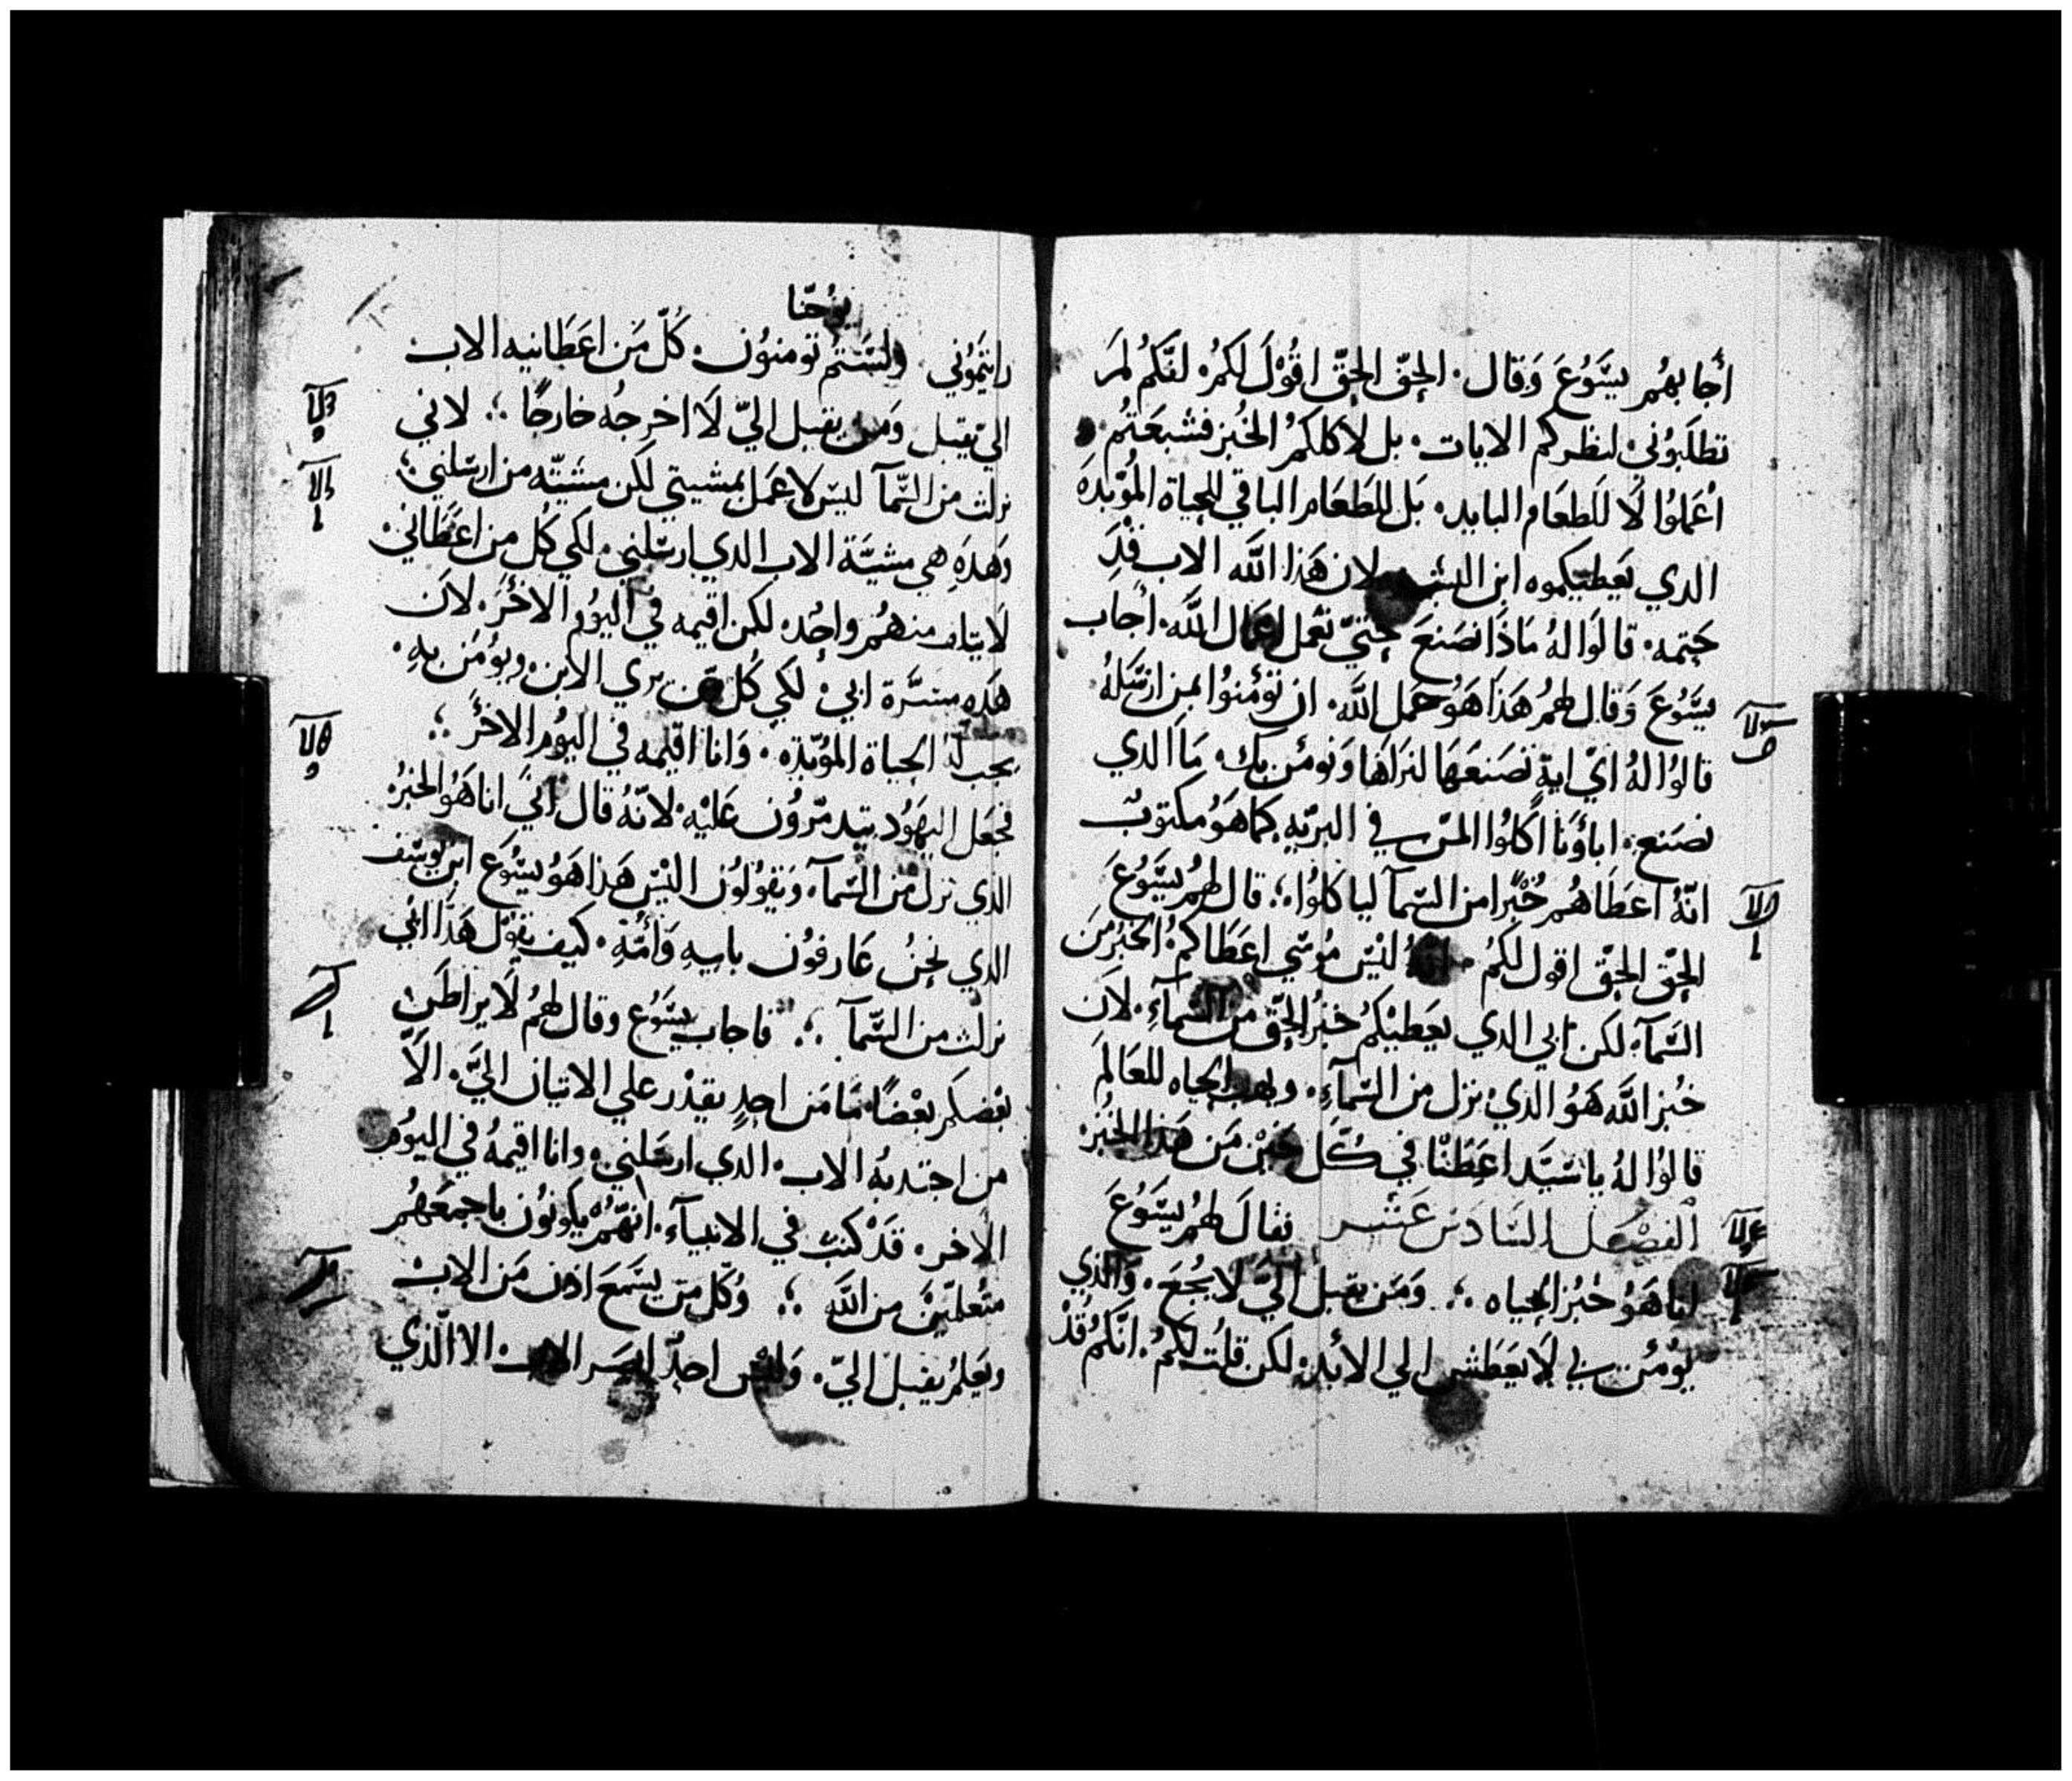 أجابهُم يسَّوُعَ وَقال. الحقّ الحقّ اقُوْلَ لكمُ. لنَّكمُ لمَ
تطلَبوُني لنظركم الايات. بل لاكلكمُ الخُبز فشبعَتُم
اعْمَلوُا لَا للَطعَام البايد. بَل للطَعَام الباقي للحياة المُؤبدَه
الدي يَعطيكموه ابن البشر لان هَذا اللَّه الاب قَدَ
خَتمه. قالوَا لهُ مَاذَا نصَنعَ حتيّ نعمل اعمال اللَّه. اجاب
يسَّوُعَ وَقال لهمُ هَذَا هَوُ عمَل اللَّه. ان تؤمنوُا بمن ارسَّلهُ
قالوُا لهُ ايّ اية تصَنعَهَا لنرَاهَا وَنؤمن بك. مَا الدي
نصَنع. اباؤنَا اكَلوُا المنّ في البرّيه. كماهَوُ مكتوبٌ
انّهُ اعطَاهُم خُبْزًا من السّمآ لياكلوُا ؛ قال لهمُ يسَّوُعَ
الحقّ الحقّ اقول لكمُ انهُ ليْسَ موُسَي اعطَاكمُ الخبزُ منَ
السَّمآء. لكن ابي الدي يعَطيْكمُ خبزُ الحقّ من السَّمآءِ. لاَن
خُبز اللَّه هَوُ الديْ نزل من السَّمآءِ. ويهب الحياه للعَالمَ
قالوُا لهُ ياسَيّد اعَطنْا في كُلّ حَيْن مَن هَذا الخبُز
الفصْل السَّادسَ عَشر فقالَ لهمُ يسَّوُعَ
انا هَوُ خبُز الحياه ؛ وَمَن يقبل اليّ لا يجُعَ. وَالذي
يوُمنُ بي لَا يعَطش الي الأبد. لكن قلُت لكمُ. انّكمُ قَدْ
يوُحَنّا
رايتموُني وَلسَّتمُ تومنوُن. كلّ مَن اعَطَانيه الاب
اليّ يقبل وَمن يقبل اليّ لَا اخرجُه خارجًا ؛ لاني
نزلت من السَّمآ ليسَ لاعمَل بمشيتي لكن مشيّته من ارسَلني ؛
وَهَدَهِ هي مشيَّة الاب الدي ارسَلني. لكي كُل من اعطَاني
لَا يتلف منهمُ واحدُ. لكن اقيمه في اليوُم الاخرَ. لاَن
هَدهِ مسَرّة ابي. لكي كُل من يري الابن ويوُمَن بهِ.
يجب لهُ الحياة المؤبّدة. وَانا اقيمه في اليوُم الاخرَ ؛
فجعَل اليهَوُد يتدمّروُن عَليْه. لانّهُ قال انيّ انا هَوُ الخبزُ
الذي نزل من السَّمآء. وَيقوُلوُن اليْسَ هَذا هَوُ يسَّوُعَ ابن يوسَف
الدي نحنُ عَارفوُن بابيهِ وَأمّهِ. كيف يقوُل هَدا اني
نزلت من السَّمآ ؛ فاجاب يسَّوُع وقال لهمُ لَا يراطن
بعْضكم بعْضًا. مَا مَن احدٍ يقدْر علي الاتيان اليّ. الاَّ
من اجتدبهُ الاب. الدي ارسَلني. وانا اقيمهُ في اليوُم
الاخر. قدْ كتبَ في الانبيآء. انهّمُ يكوُنوُن باجمعَهُم
متُعلّميْن من اللَّه ؛ وَكُلّ من يسَّمعَ اذن مَن الاب
ويَعلمُ يقبلَ اليّ. وَليسْ احدٌ ابصَر الاب. الا الّذي